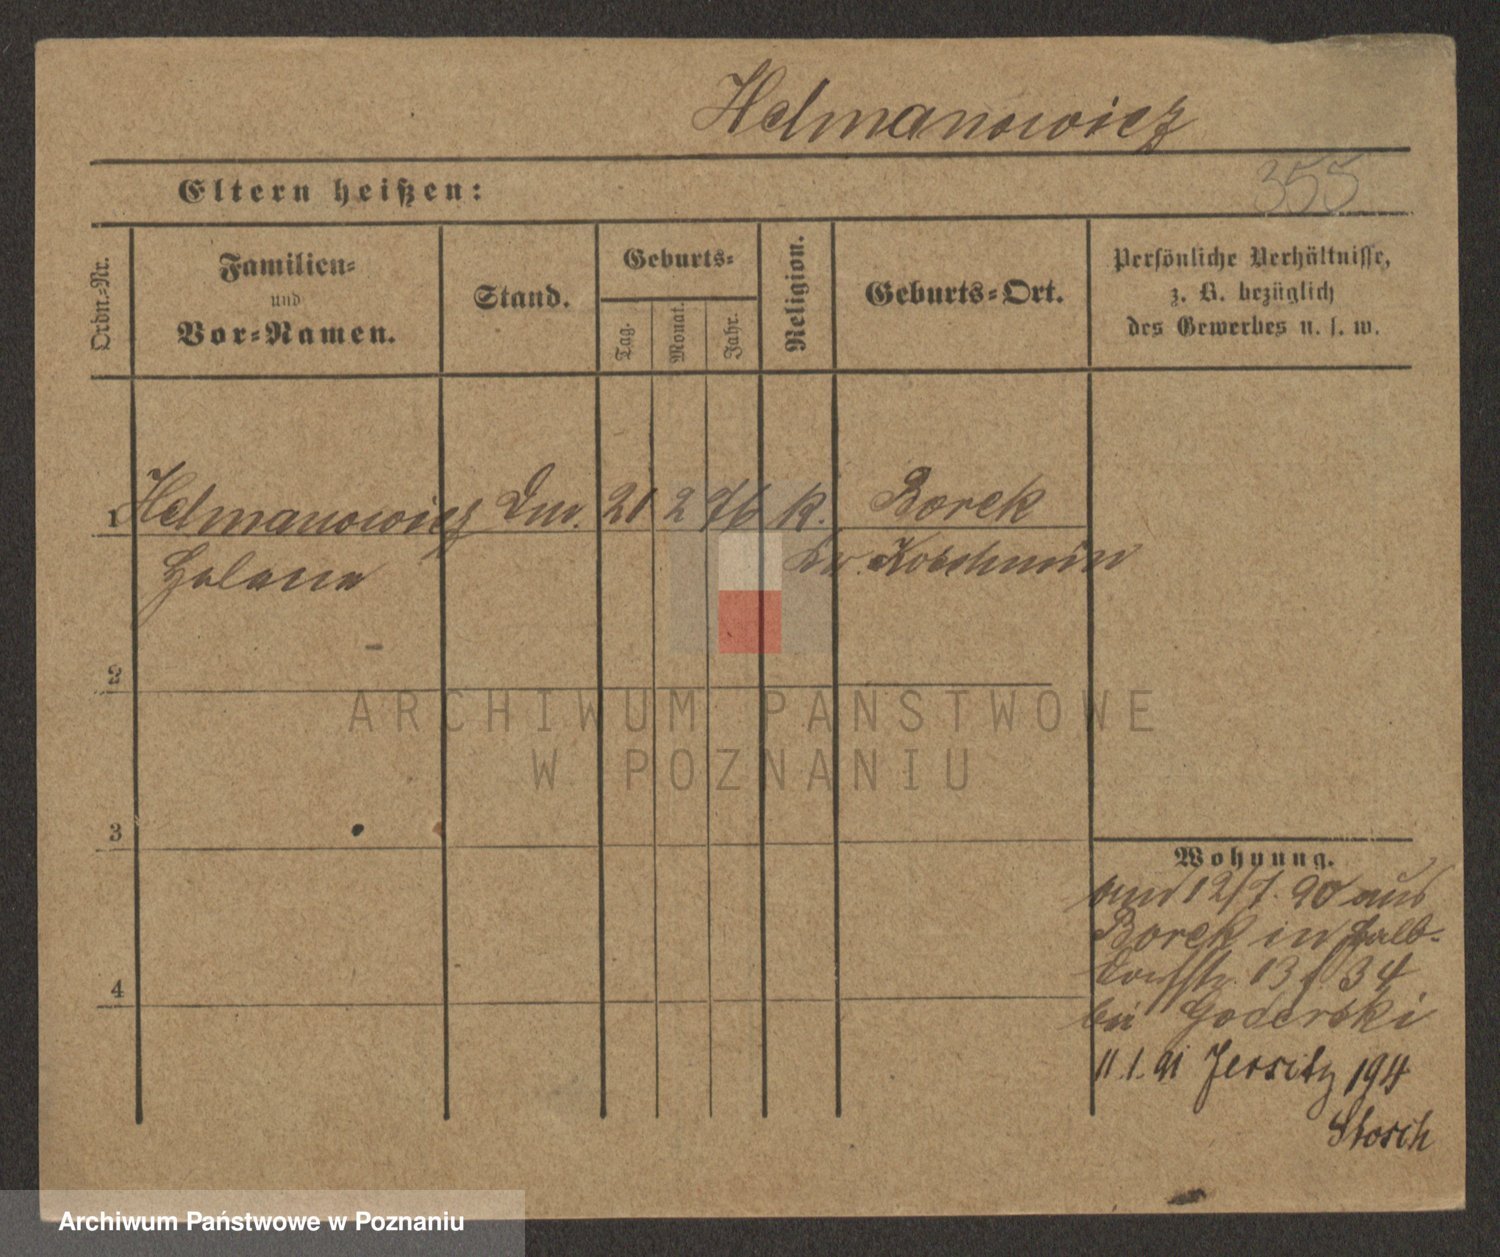 Helmanowicz
355
Eltern heißen:
Ordn.-Nr.
Familien-
und
Vor-Namen.
Stand.
Geburts-
Tag.
Monat.
Jahr.
Religion.
Geburts-Ort.
Persönliche Verhältnisse,
z. B. bezüglich
des Gewerbes u. s. w.
1 Helmanowicz 21 2 76 k. Borek
Helena Kr. Koschmin
2
3
4
Wohnung.
12/7. 90 aus
Borek in Halb-
dorfstr. 13 34
bei Goderski
11.1.91 Jersitz 194
Storch
ARCHIWUM PAŃSTWOWE
W POZNANIU
Archiwum Państwowe w Poznaniu